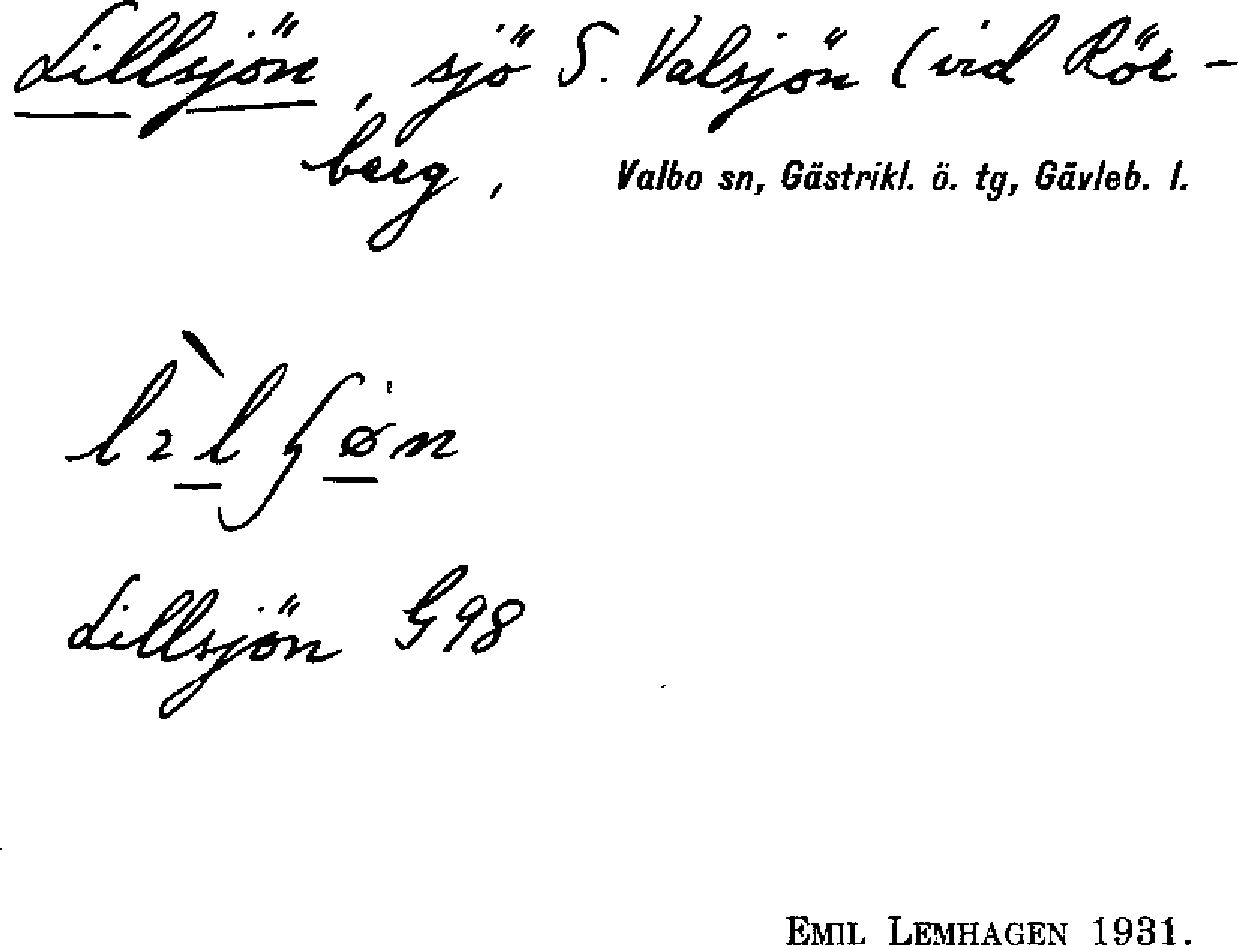 Lillsjön, sjö S. Valsjön (vid Rör-
berg,
Valbo sn, Gästrikl. ö. tg, Gävleb. l.
Lillsjön G98
EMIL LEMHAGEN 1931.